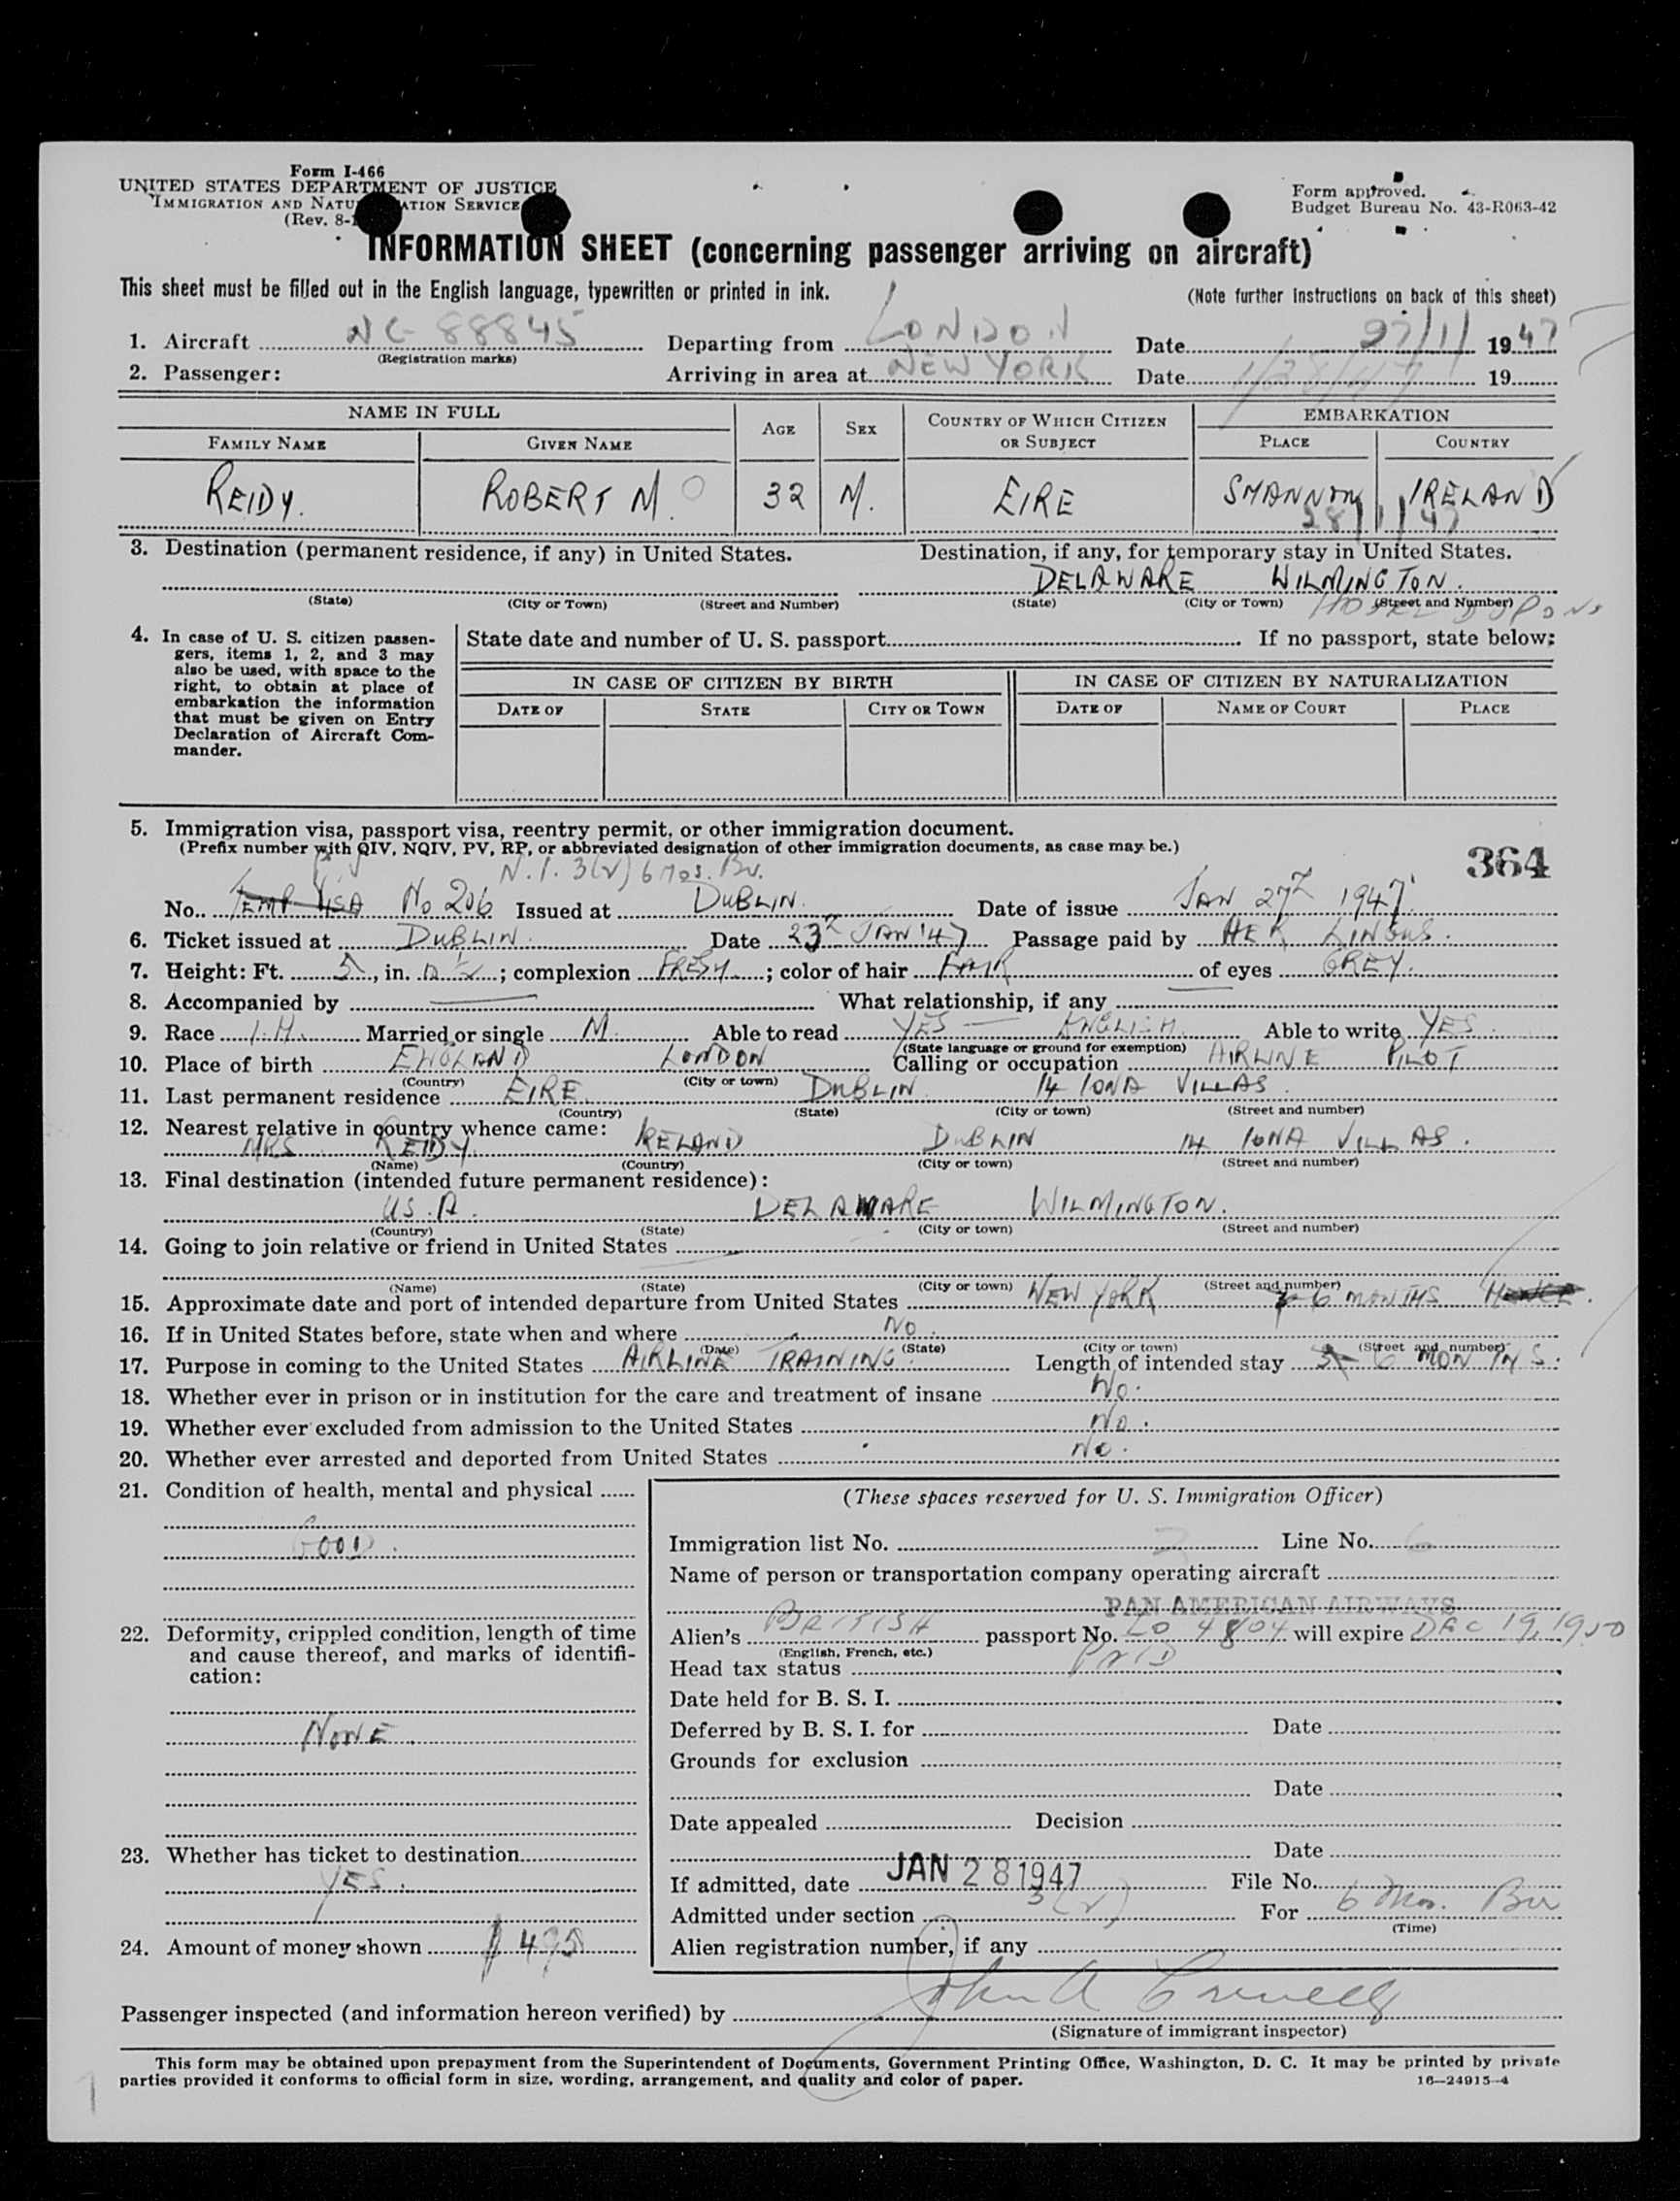 Form I-466
UNITED STATES DEPARTMENT OF JUSTICE
IMMIGRATION AND NATURALIZATION SERVICE
(Rev. 8-
Form approved.
Budget Bureau No. 43-R063-42
INFORMATION SHEET (concerning passenger arriving on aircraft)
This sheet must be filled out in the English language, typewritten or printed in ink. (Note further instructions on back of this sheet)
1. Aircraft NC 88845 Departing from LONDON Date 27/1/ 1947
(Registration marks)
2. Passenger: Arriving in area at NEW YORK Date 1/28/47 19
NAME IN FULL AGE SEX COUNTRY OF WHICH CITIZEN OR SUBJECT EMBARKATION
FAMILY NAME GIVEN NAME PLACE COUNTRY
REIDY. ROBERT M. O 32 M. EIRE SHANNON IRELAND
28/1/47
3. Destination (permanent residence, if any) in United States. Destination, if any, for temporary stay in United States.
DELAWARE WILMINGTON.
(State) (City or Town) (Street and Number) (State) (City or Town) (Street and Number)
HOTEL DUPONT
4. In case of U. S. citizen passen-
gers, items 1, 2, and 3 may
also be used, with space to the
right, to obtain at place of
embarkation the information
that must be given on Entry
Declaration of Aircraft Com-
mander.
State date and number of U. S. passport If no passport, state below:
IN CASE OF CITIZEN BY BIRTH IN CASE OF CITIZEN BY NATURALIZATION
DATE OF STATE CITY OR TOWN DATE OF NAME OF COURT PLACE
5. Immigration visa, passport visa, reentry permit, or other immigration document.
(Prefix number with QIV, NQIV, PV, RP, or abbreviated designation of other immigration documents, as case may be.)
364
N.I. 3(2) 6 mos.
No. TEMP VISA No 206 Issued at DUBLIN. Date of issue JAN 27 1947
6. Ticket issued at DUBLIN. Date 23 JAN '47 Passage paid by AER LINGUS.
7. Height: Ft. 5, in. ; complexion FRESH ; color of hair FAIR of eyes GREY.
8. Accompanied by What relationship, if any
9. Race I.H. Married or single M. Able to read YES — ENGLISH. Able to write YES.
(State language or ground for exemption)
10. Place of birth ENGLAND LONDON Calling or occupation AIRLINE PILOT
(Country) (City or town)
11. Last permanent residence EIRE. DUBLIN. 14 IONA VILLAS.
(Country) (State) (City or town) (Street and number)
12. Nearest relative in country whence came:
MRS. REIDY. IRELAND DUBLIN 14 IONA VILLAS.
(Name) (Country) (City or town) (Street and number)
13. Final destination (intended future permanent residence):
U.S.A. DELAWARE WILMINGTON.
(Country) (State) (City or town) (Street and number)
14. Going to join relative or friend in United States
(Name) (State) (City or town) (Street and number)
15. Approximate date and port of intended departure from United States NEW YORK 6 MONTHS HENCE.
16. If in United States before, state when and where NO.
(Date) (State) (City or town) (Street and number)
17. Purpose in coming to the United States AIRLINE TRAINING. Length of intended stay 6 MONTHS.
18. Whether ever in prison or in institution for the care and treatment of insane No.
19. Whether ever excluded from admission to the United States No.
20. Whether ever arrested and deported from United States No.
21. Condition of health, mental and physical
GOOD.
22. Deformity, crippled condition, length of time
and cause thereof, and marks of identifi-
cation:
NONE.
23. Whether has ticket to destination
YES.
24. Amount of money shown $ 495
(These spaces reserved for U. S. Immigration Officer)
Immigration list No. 2 Line No. 6
Name of person or transportation company operating aircraft
PAN AMERICAN AIRWAYS
Alien's BRITISH passport No. LO 4804 will expire DEC 19, 1950
(English, French, etc.)
Head tax status PAID
Date held for B. S. I.
Deferred by B. S. I. for Date
Grounds for exclusion
Date
Date appealed Decision
Date
If admitted, date JAN 28 1947 File No.
Admitted under section 3(2) For 6 Mos.
(Time)
Alien registration number, if any
Passenger inspected (and information hereon verified) by John A
(Signature of immigrant inspector)
This form may be obtained upon prepayment from the Superintendent of Documents, Government Printing Office, Washington, D. C. It may be printed by private
parties provided it conforms to official form in size, wording, arrangement, and quality and color of paper.
16—24915-4